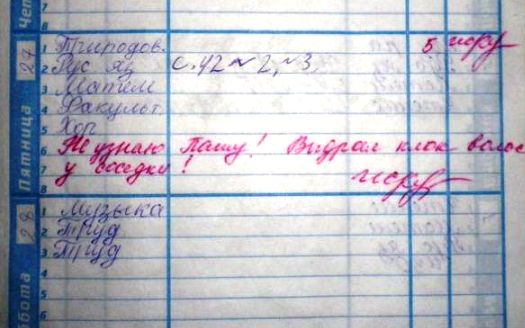 Чет
27
Пятница
1 Природов. 5
2 Рус яз с. 42 № 2, № 3,
3 Матем
4 Факульт.
5 Хор
6 Не узнаю Пашу! Выдрал клок волос
7 у соседки!
8
28
ббота
1 Музыка
2 Труд
3 Труд
4
5
6
7
8